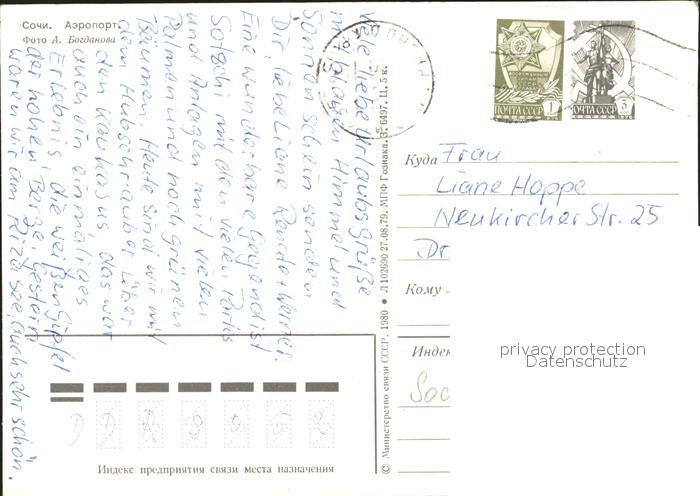 Сочи. Аэропорт.
Фото А. Богданова
Viele liebe Urlaubsgrüße
im blauen Himmel und
Sonnenschein senden
Dir, liebe Liane Renate + Werner.
Eine wunderbare Gegend ist
Sotschi mit den vielen Parks
und Anlagen mit vielen
Palmen und noch grünen
Bäumen. Heute sind wir mit
dem Hubschrauber über
den Kaukasus das war
auch ein einmaliges
Erlebnis, die weißen Gipfel
der hohen Berge. Gestern
waren wir am Rizasee, auch sehr schön.
ПОЧТА СССР 1
ПОЧТА СССР 3
Куда Frau
Liane Hoppe
Neukircher Str. 25
Dr
Кому
Индек
Soc
privacy protection
Datenschutz
© Министерство связи СССР, 1980 ● Л 102690 27.08.79. МПФ Гознака. З. 6497. Ц. 5 к.
Индекс предприятия связи места назначения